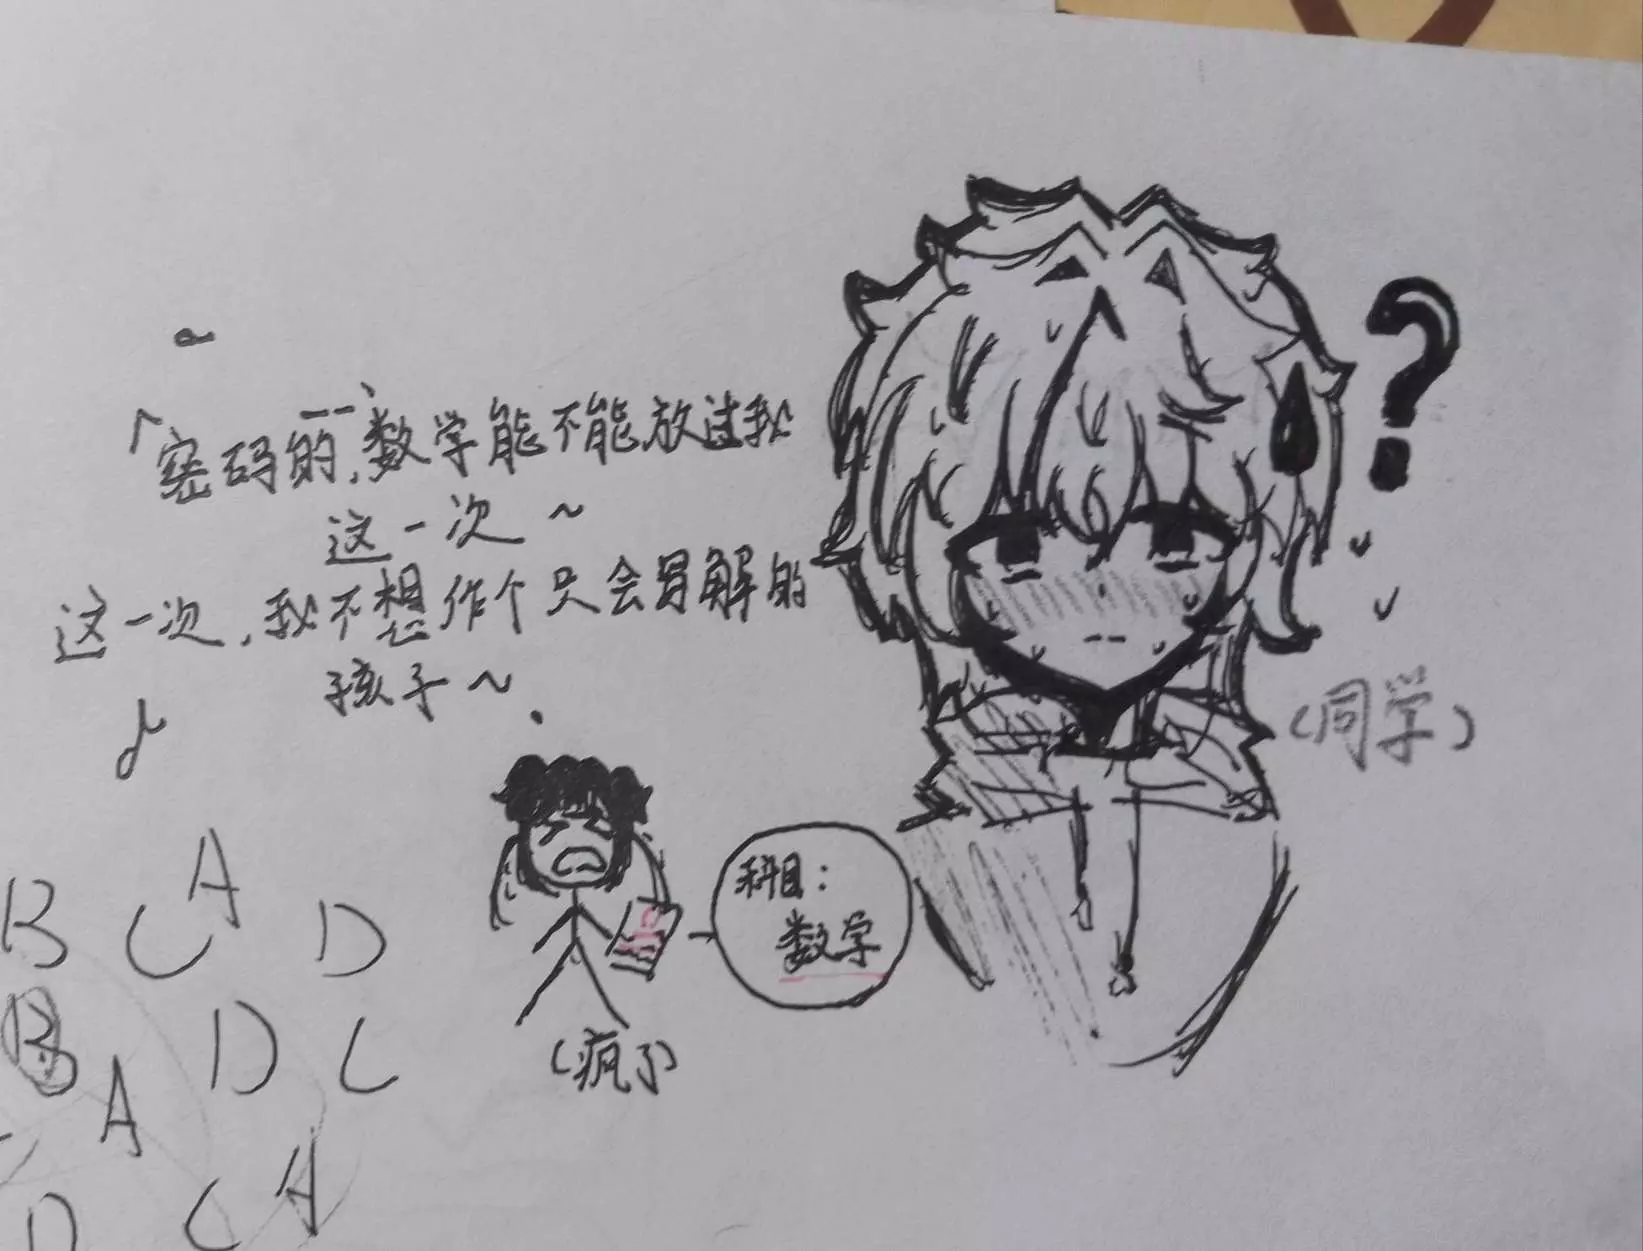 密码的,数学能不能放过我
这一次~
这一次,我不想作个只会写解的
孩子~
?
(同学)
科目:
数学
(疯了)
A
B C D
B D C
A
D C A